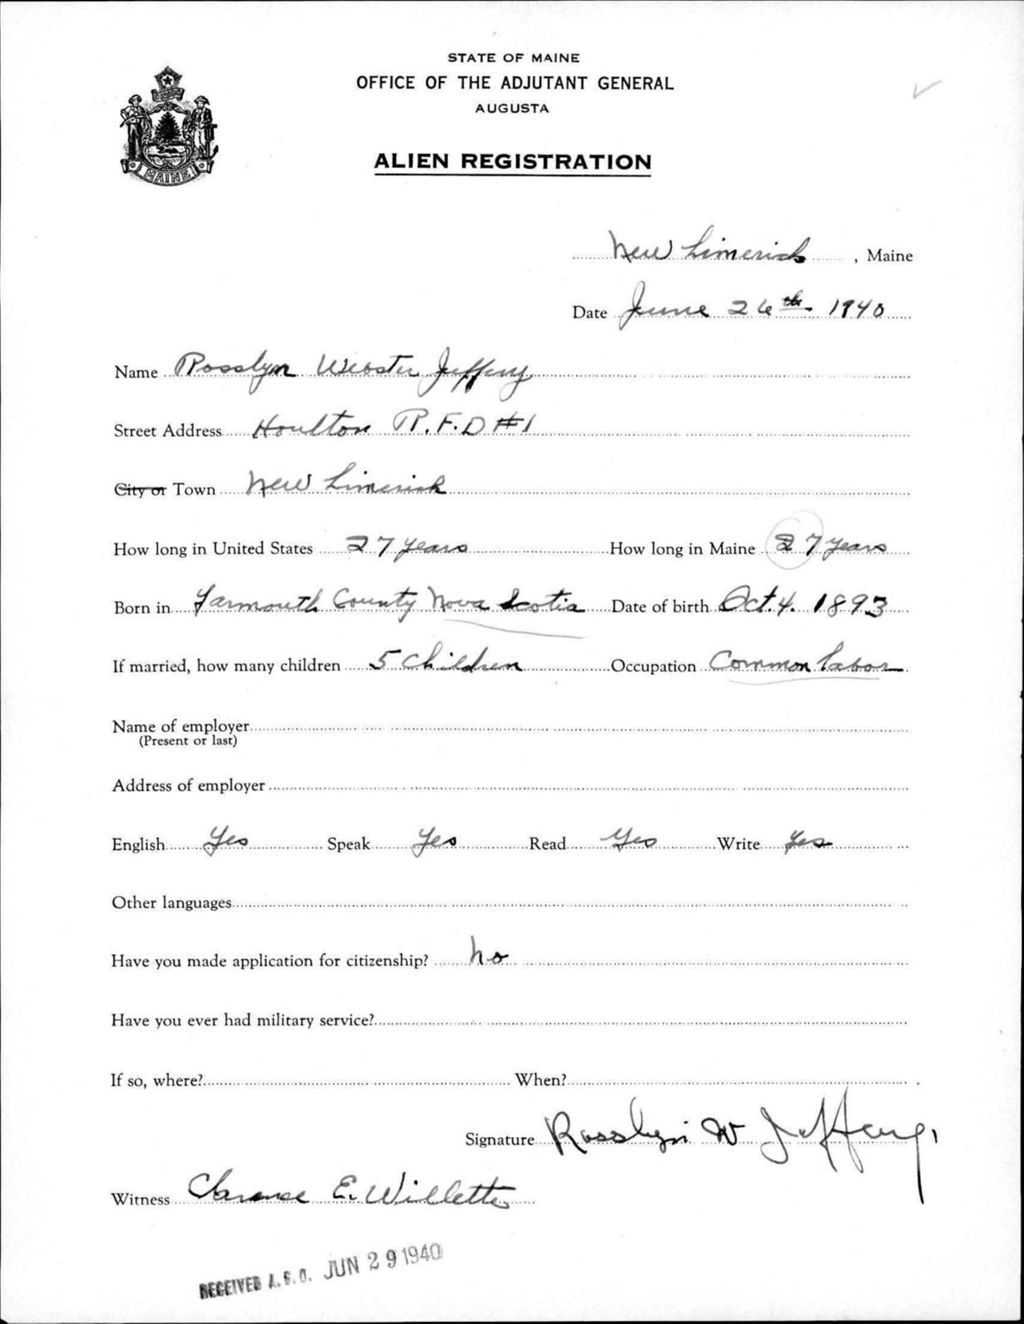 STATE OF MAINE
OFFICE OF THE ADJUTANT GENERAL
AUGUSTA
ALIEN REGISTRATION
MAINE
New Limerick, Maine
Date June 26th 1940
Name Rosslyn Webster Jeffery
Street Address Houlton R.F.D #1
City or Town New Limerick
How long in United States 27 years How long in Maine 27 years
Born in Yarmouth County Nova Scotia Date of birth Oct. 4. 1893
If married, how many children 5 Children Occupation Common labor
Name of employer
(Present or last)
Address of employer
English Yes Speak Yes Read Yes Write Yes
Other languages
Have you made application for citizenship? No
Have you ever had military service?
If so, where? When?
Signature Rosslyn W Jeffery
Witness Clarence E. Willette
RECEIVED A.G.O. JUN 29 1940